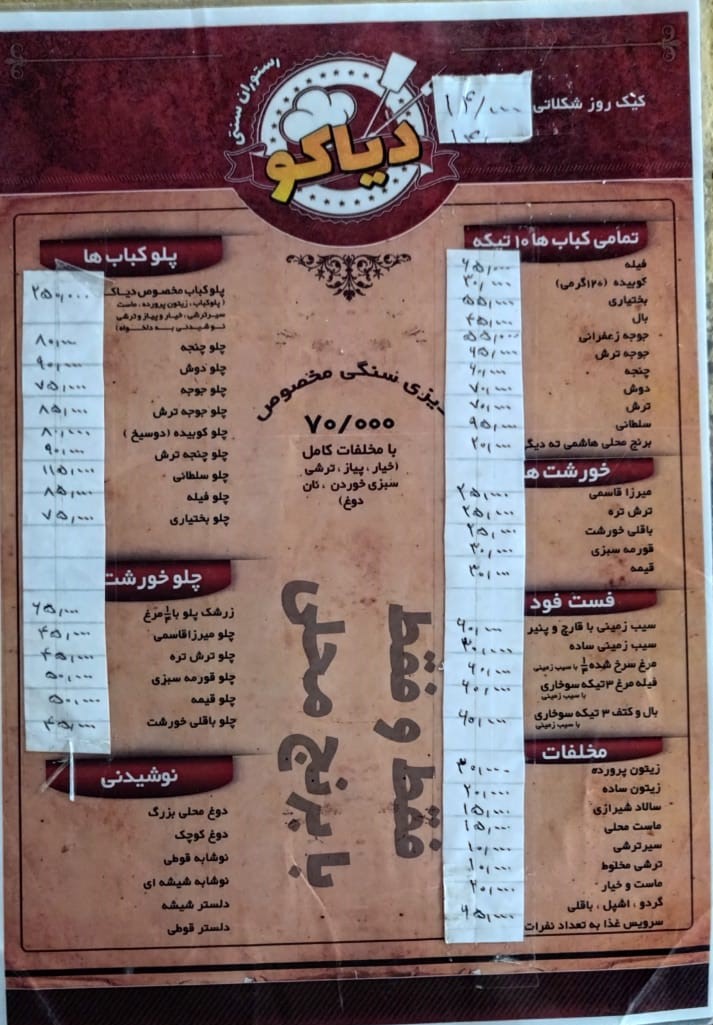 رستوران سنتی
دیاکو
کیک روز شکلاتی ۱۴/۰۰۰
تمامی کباب ها ۱۰ تیکه
فیله ۶۵/۰۰۰
کوبیده (۱۲۰گرمی) ۳۰/۰۰۰
بختیاری ۵۵/۰۰۰
بال ۴۵/۰۰۰
جوجه زعفرانی ۵۵/۰۰۰
جوجه ترش ۶۵/۰۰۰
چنجه ۶۰/۰۰۰
دوش ۷۰/۰۰۰
ترش ۷۰/۰۰۰
سلطانی ۹۵/۰۰۰
برنج محلی هاشمی ته دیگ ۲۰/۰۰۰
خورشت ها
میرزا قاسمی ۲۵/۰۰۰
ترش تره ۲۵/۰۰۰
باقلی خورشت ۲۵/۰۰۰
قورمه سبزی ۳۰/۰۰۰
قیمه ۳۰/۰۰۰
فست فود
سیب زمینی با قارچ و پنیر ۶۰/۰۰۰
سیب زمینی ساده ۳۰/۰۰۰
مرغ سرخ شده با سیب زمینی ۶۰/۰۰۰
فیله مرغ ۳ تیکه سوخاری ۶۰/۰۰۰
با سیب زمینی
بال و کتف ۳ تیکه سوخاری ۶۰/۰۰۰
با سیب زمینی
مخلفات
زیتون پرورده ۳۰/۰۰۰
زیتون ساده ۲۰/۰۰۰
سالاد شیرازی ۱۵/۰۰۰
ماست محلی ۱۵/۰۰۰
سیرترشی ۱۰/۰۰۰
ترشی مخلوط ۱۰/۰۰۰
ماست و خیار ۲۰/۰۰۰
گردو ، اشپل ، باقلی
سرویس غذا به تعداد نفرات ۶۵/۰۰۰
دیزی سنگی مخصوص
۷۰/۰۰۰
با مخلفات کامل
(خیار ، پیاز ، ترشی
سبزی خوردن ، نان
دوغ)
فقط و فقط
با برنج محلی
پلو کباب ها
پلوکباب مخصوص دیاکو ۲۵۰/۰۰۰
(پلوکباب ، زیتون پرورده ، ماست
سیرترشی ، خیار و پیاز و ترشی
نوشیدنی به دلخواه)
چلو چنجه ۸۰/۰۰۰
چلو دوش ۹۰/۰۰۰
چلو جوجه ۷۵/۰۰۰
چلو جوجه ترش ۸۵/۰۰۰
چلو کوبیده (دوسیخ) ۸۰/۰۰۰
چلو چنجه ترش ۹۰/۰۰۰
چلو سلطانی ۱۱۵/۰۰۰
چلو فیله ۸۵/۰۰۰
چلو بختیاری ۷۵/۰۰۰
چلو خورشت
زرشک پلو با ¼ مرغ ۶۵/۰۰۰
چلو میرزاقاسمی ۴۵/۰۰۰
چلو ترش تره ۴۵/۰۰۰
چلو قورمه سبزی ۵۰/۰۰۰
چلو قیمه ۵۰/۰۰۰
چلو باقلی خورشت ۴۵/۰۰۰
نوشیدنی
دوغ محلی بزرگ
دوغ کوچک
نوشابه قوطی
نوشابه شیشه ای
دلستر شیشه
دلستر قوطی